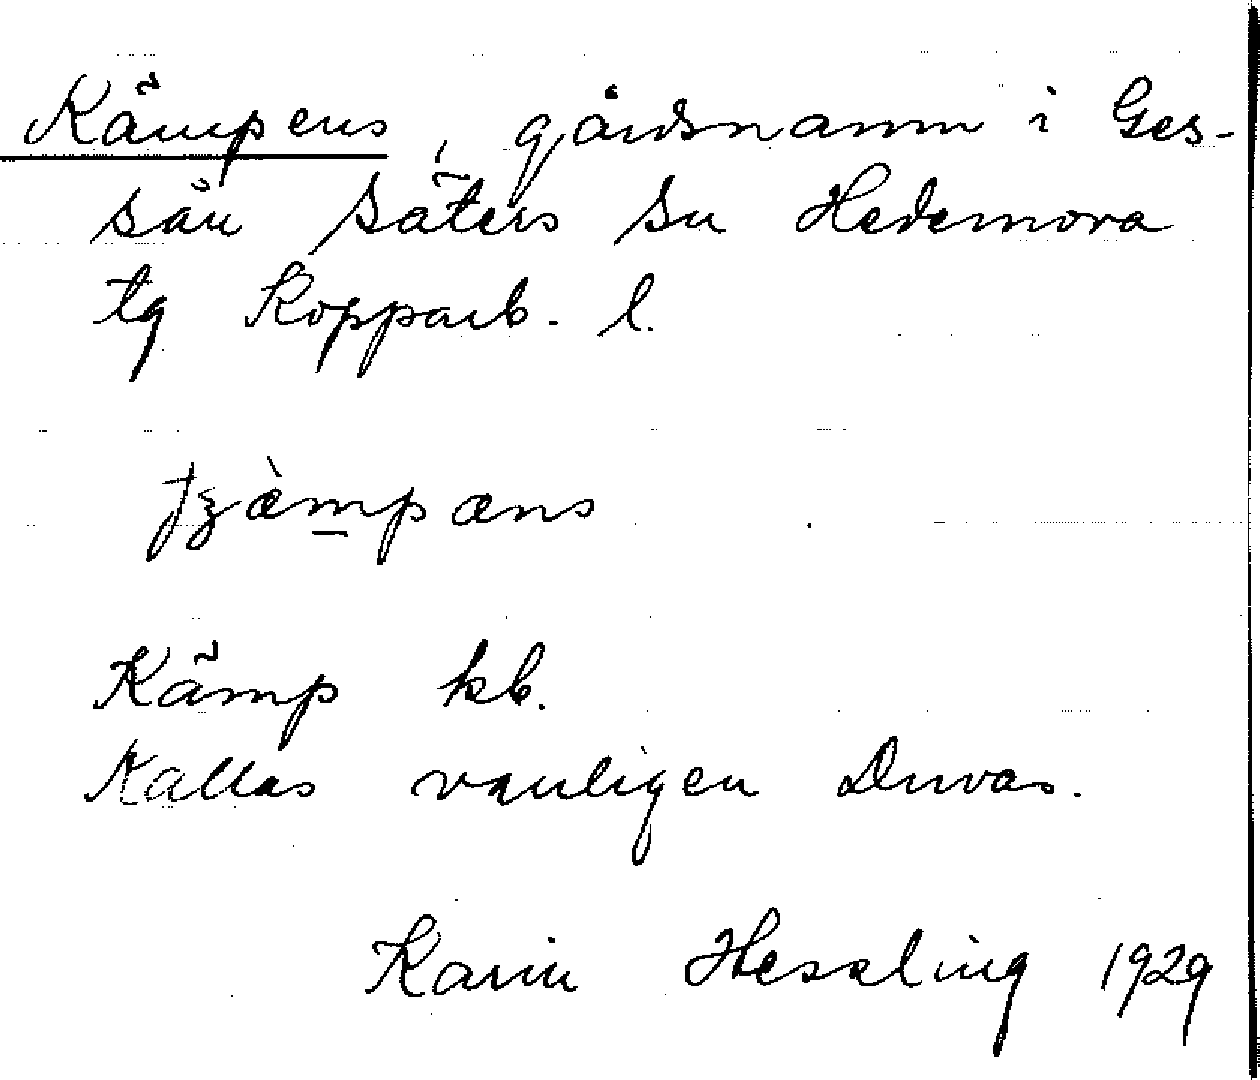 Kämpens, gårdsnamn i Ges-
sån Säters sn Hedemora
tg Kopparb. l.
tʒæ̀m̲pæns
Kämp kb.
Kallas vanligen Duvas.
Karin Hessling 1929